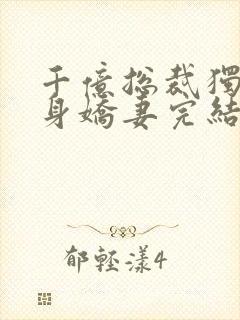 千億總裁獨
身嬌妻完結
郁輕漾4